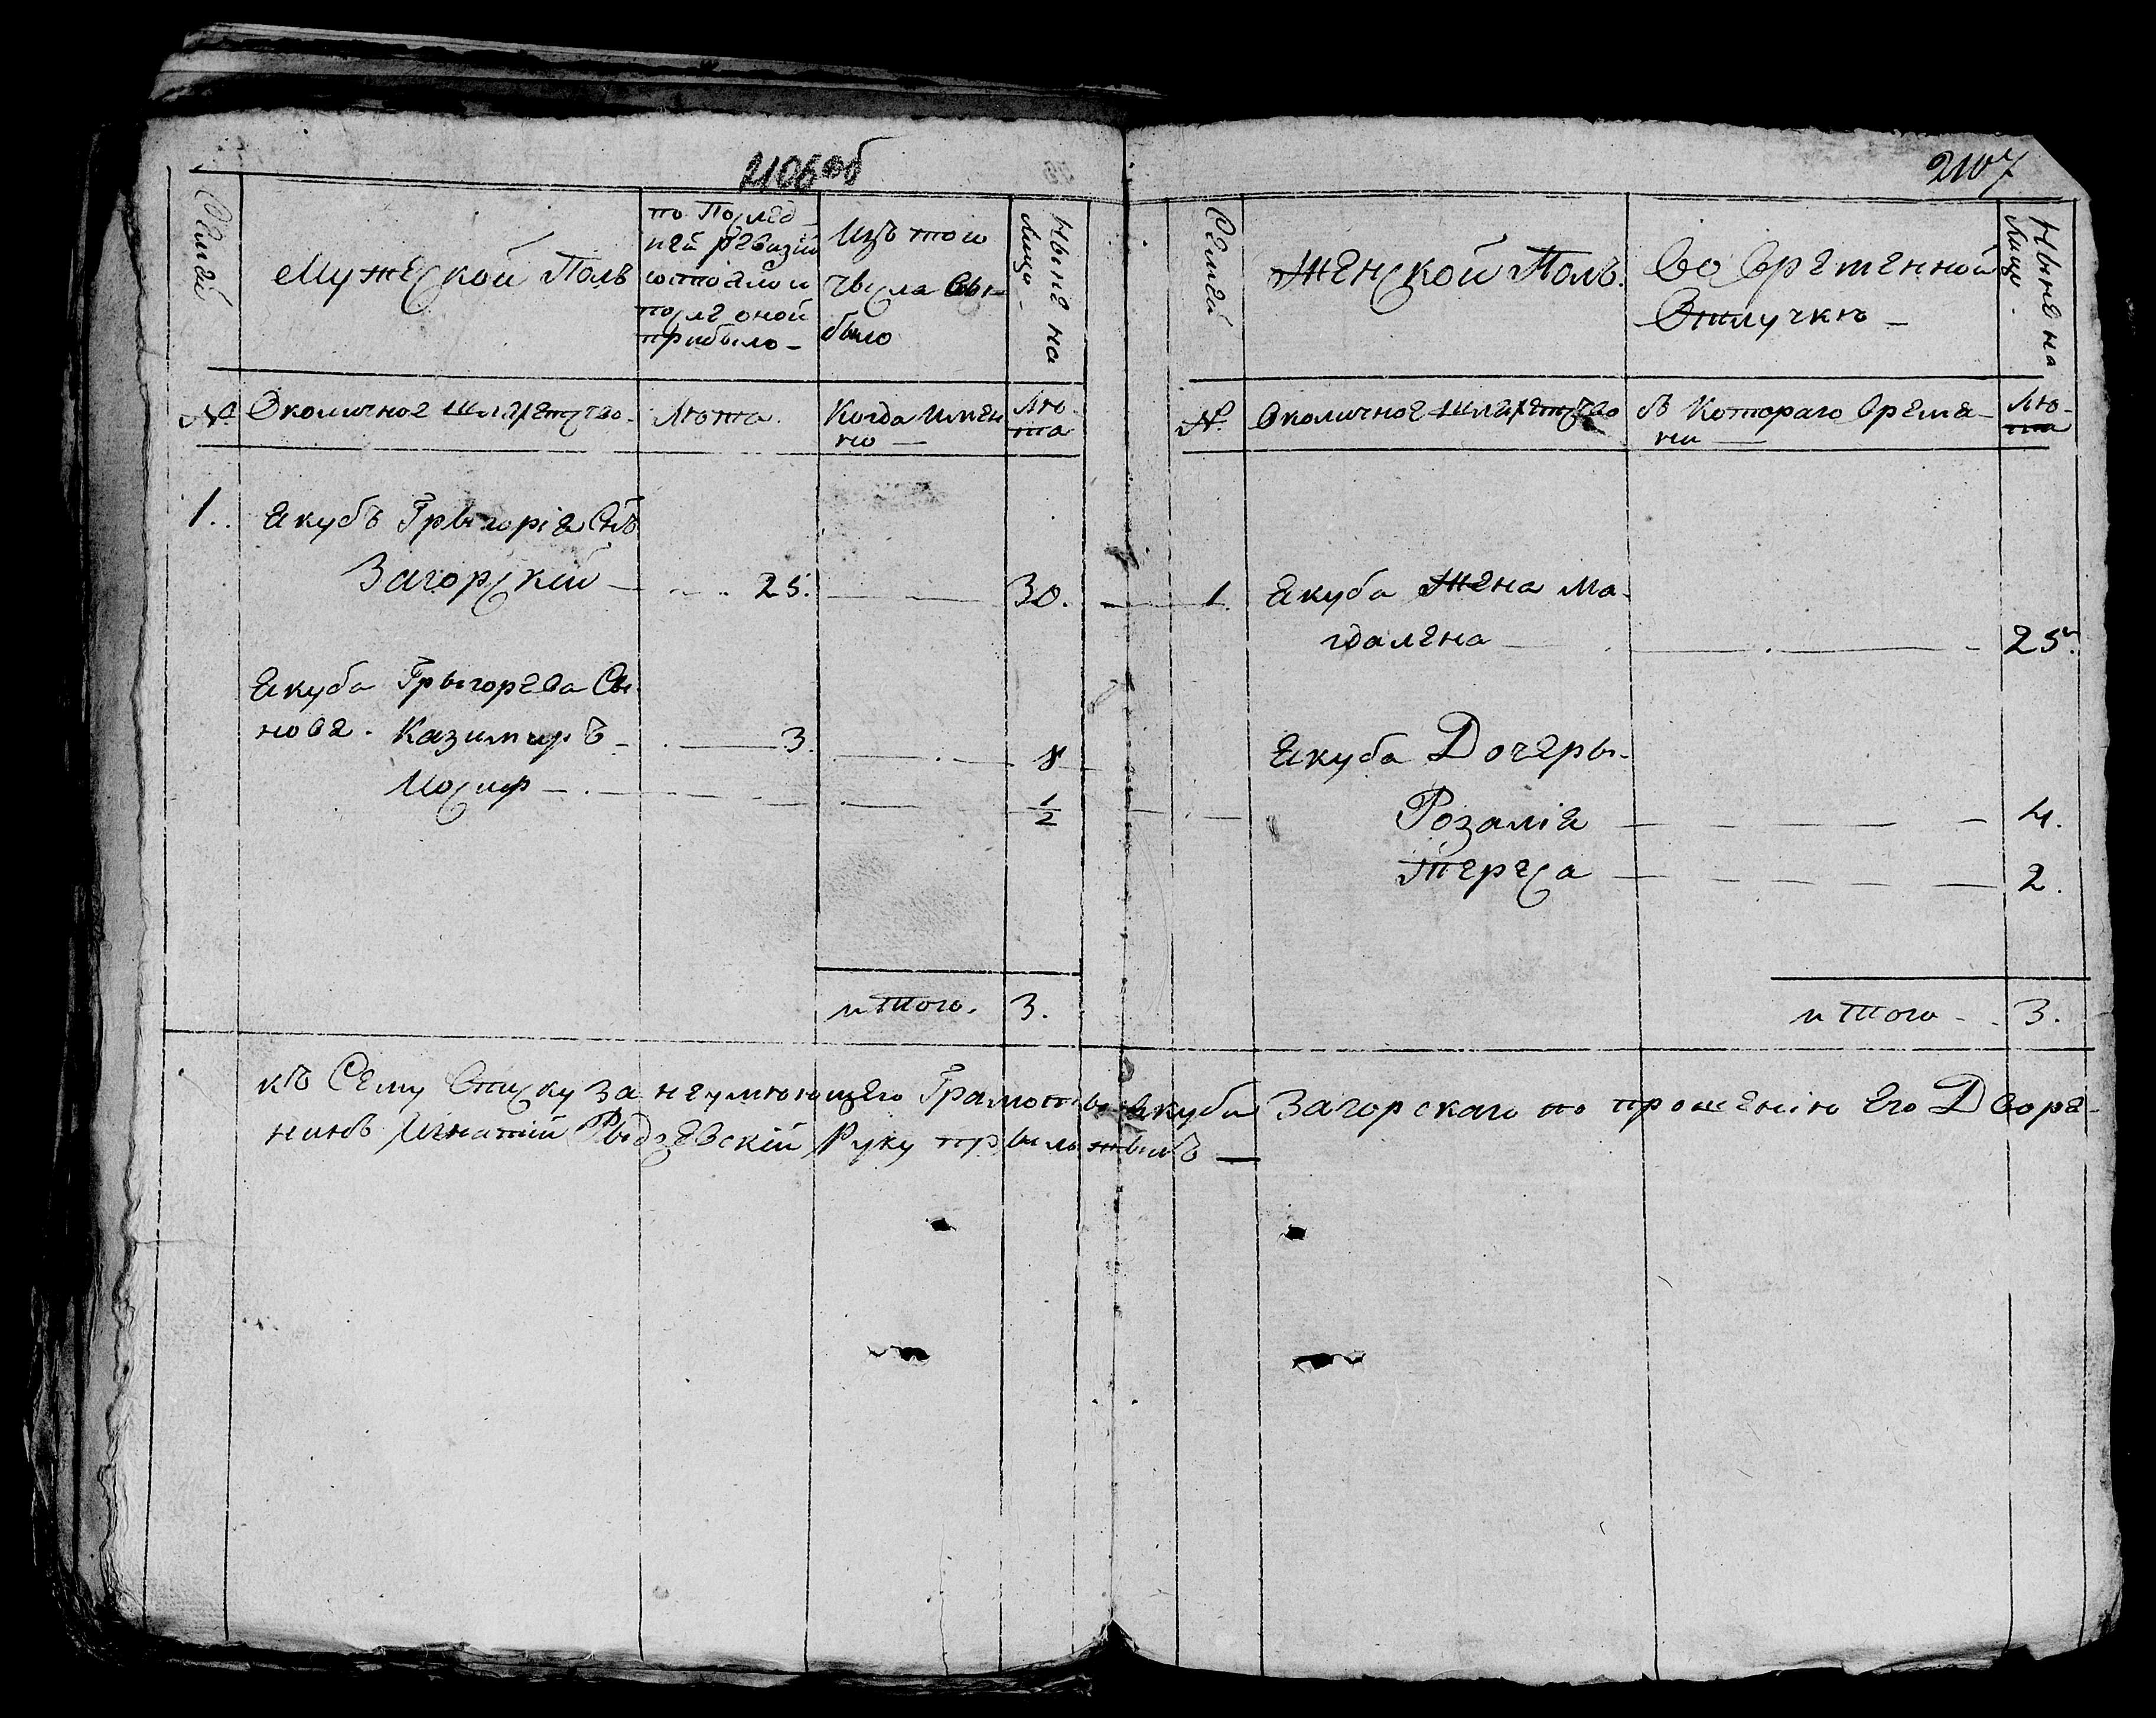 2106 об
Семей
Мужеской Полъ
по Послед-
ней ревизіи
состояло и
после оной
прибыло
Изъ того
числа вы-
было
Ныне на
лицо
№ Околичное шляхетство. Лѣта. Когда имен
но
Лѣ-
та
1. Якубъ Грыгорія Снъ
Загорскій 25. 30.
Якуба Грыгорева Сы
новя. Казимиръ 3. 8
Иосиф 1/2
итого. 3.
2107
Семей
Женской Полъ.
Во временной
Отлучкѣ
Ныне на
лицо.
№. Околичное шляхетство съ Котораго време-
ни
Лѣ-
та
1. Якуба Жена Ма-
гдалена 25.
Якуба Дочеры.
Розалія 4.
Тереса 2.
итого 3.
къ Сему Списку за неумеющего Грамоты Якуба Загорскаго по прошенію Его Дворе-
нинъ Игнатий Рыдзевскій Руку прыложылъ